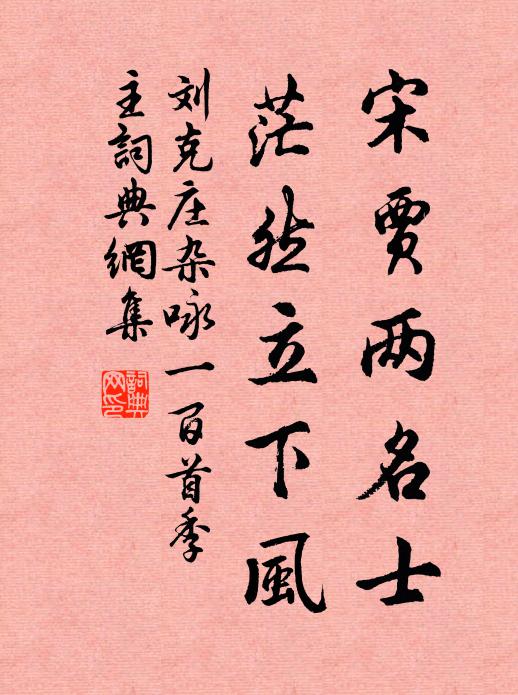 宋贾两名士
茫然立下風
刘克庄杂咏一百首季
主詞典網集
詞典
网印